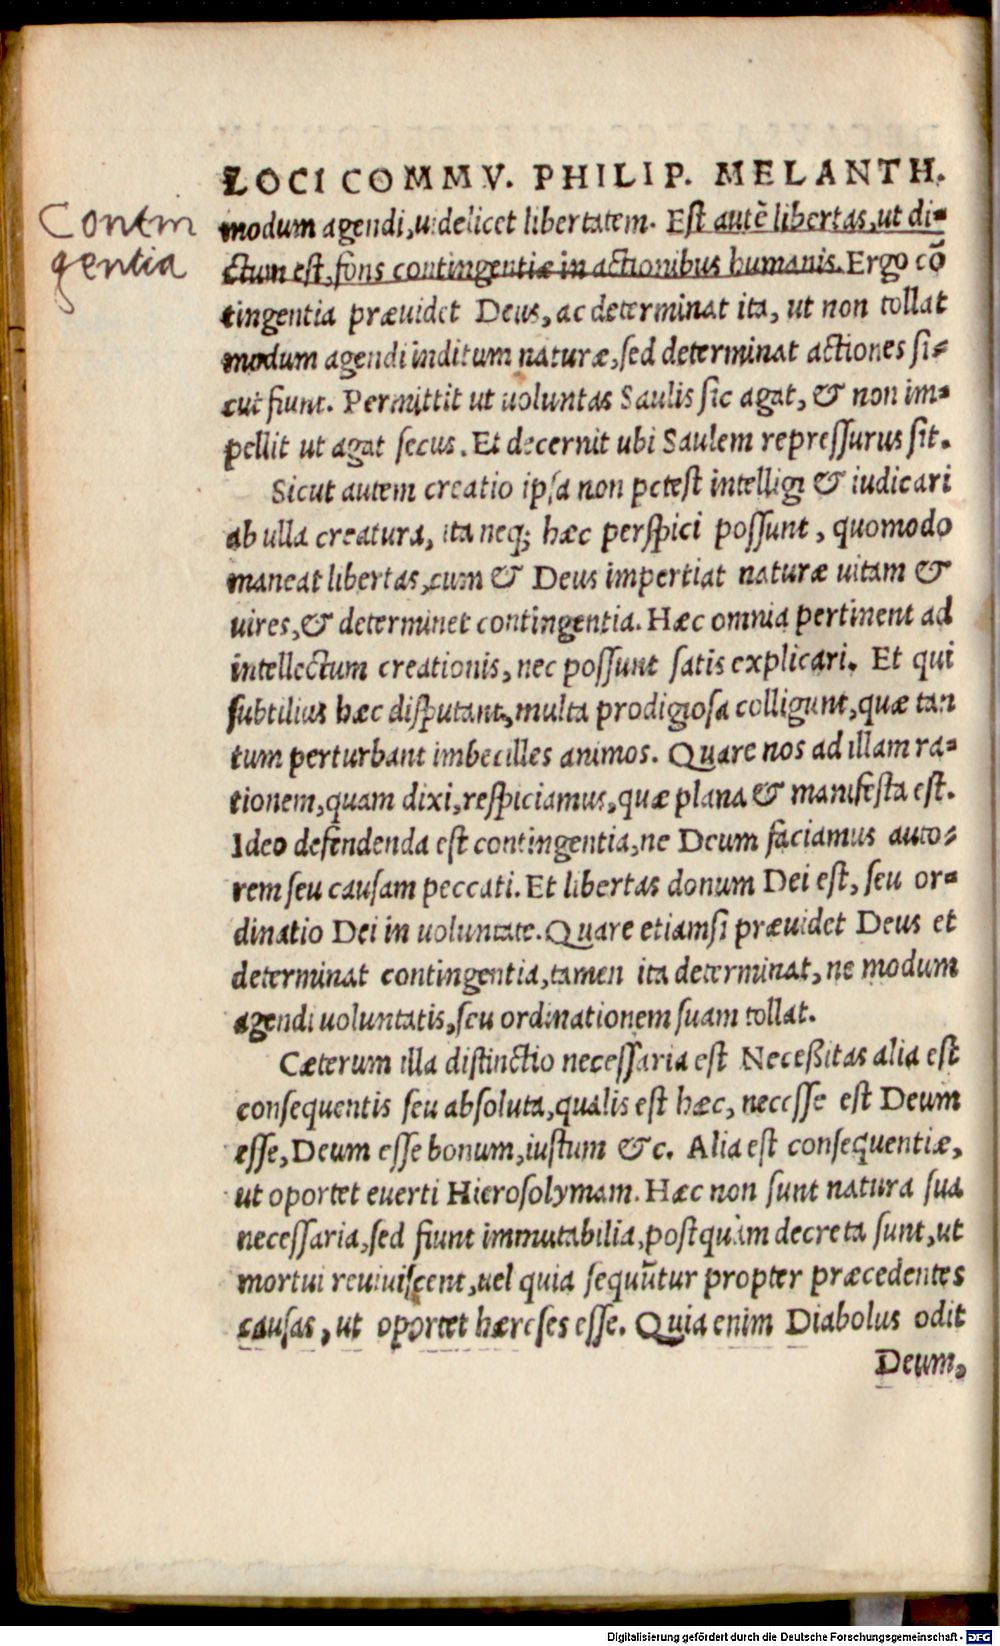 LOCI COMMV. PHILIP. MELANTH.
Contin
gentia
modum agendi, uidelicet libertatem. Est autē libertas, ut di=
ctum est, fons contingentiæ in actionibus humanis. Ergo cō
tingentia præuidet Deus, ac determinat ita, ut non tollat
modum agendi inditum naturæ, sed determinat actiones si=
cut fiunt. Permittit ut uoluntas Saulis sic agat, & non im=
pellit ut agat secus. Et decernit ubi Saulem repressurus sit.
Sicut autem creatio ipsa non potest intelligi & iudicari
ab ulla creatura, ita neq; hæc perspici possunt, quomodo
maneat libertas, cum & Deus impertiat naturæ uitam &
uires, & determinet contingentia. Hæc omnia pertinent ad
intellectum creationis, nec possunt satis explicari. Et qui
subtilius hæc disputant, multa prodigiosa colligunt, quæ tan
tum perturbant imbecilles animos. Quare nos ad illam ra=
tionem, quam dixi, respiciamus, quæ plana & manifesta est.
Ideo defendenda est contingentia, ne Deum faciamus auto=
rem seu causam peccati. Et libertas donum Dei est, seu or=
dinatio Dei in uoluntate. Quare etiamsi præuidet Deus et
determinat contingentia, tamen ita determinat, ne modum
agendi uoluntatis, seu ordinationem suam tollat.
Cæterum illa distinctio necessaria est Neceßitas alia est
consequentis seu absoluta, qualis est hæc, necesse est Deum
esse, Deum esse bonum, iustum &c. Alia est consequentiæ,
ut oportet euerti Hierosolymam. Hæc non sunt natura sua
necessaria, sed fiunt immutabilia, postquàm decreta sunt, ut
mortui reuiuiscent, uel quia sequūtur propter præcedentes
causas, ut oportet hæreses esse. Quia enim Diabolus odit
Deum,
Digitalisierung gefördert durch die Deutsche Forschungsgemeinschaft - DFG